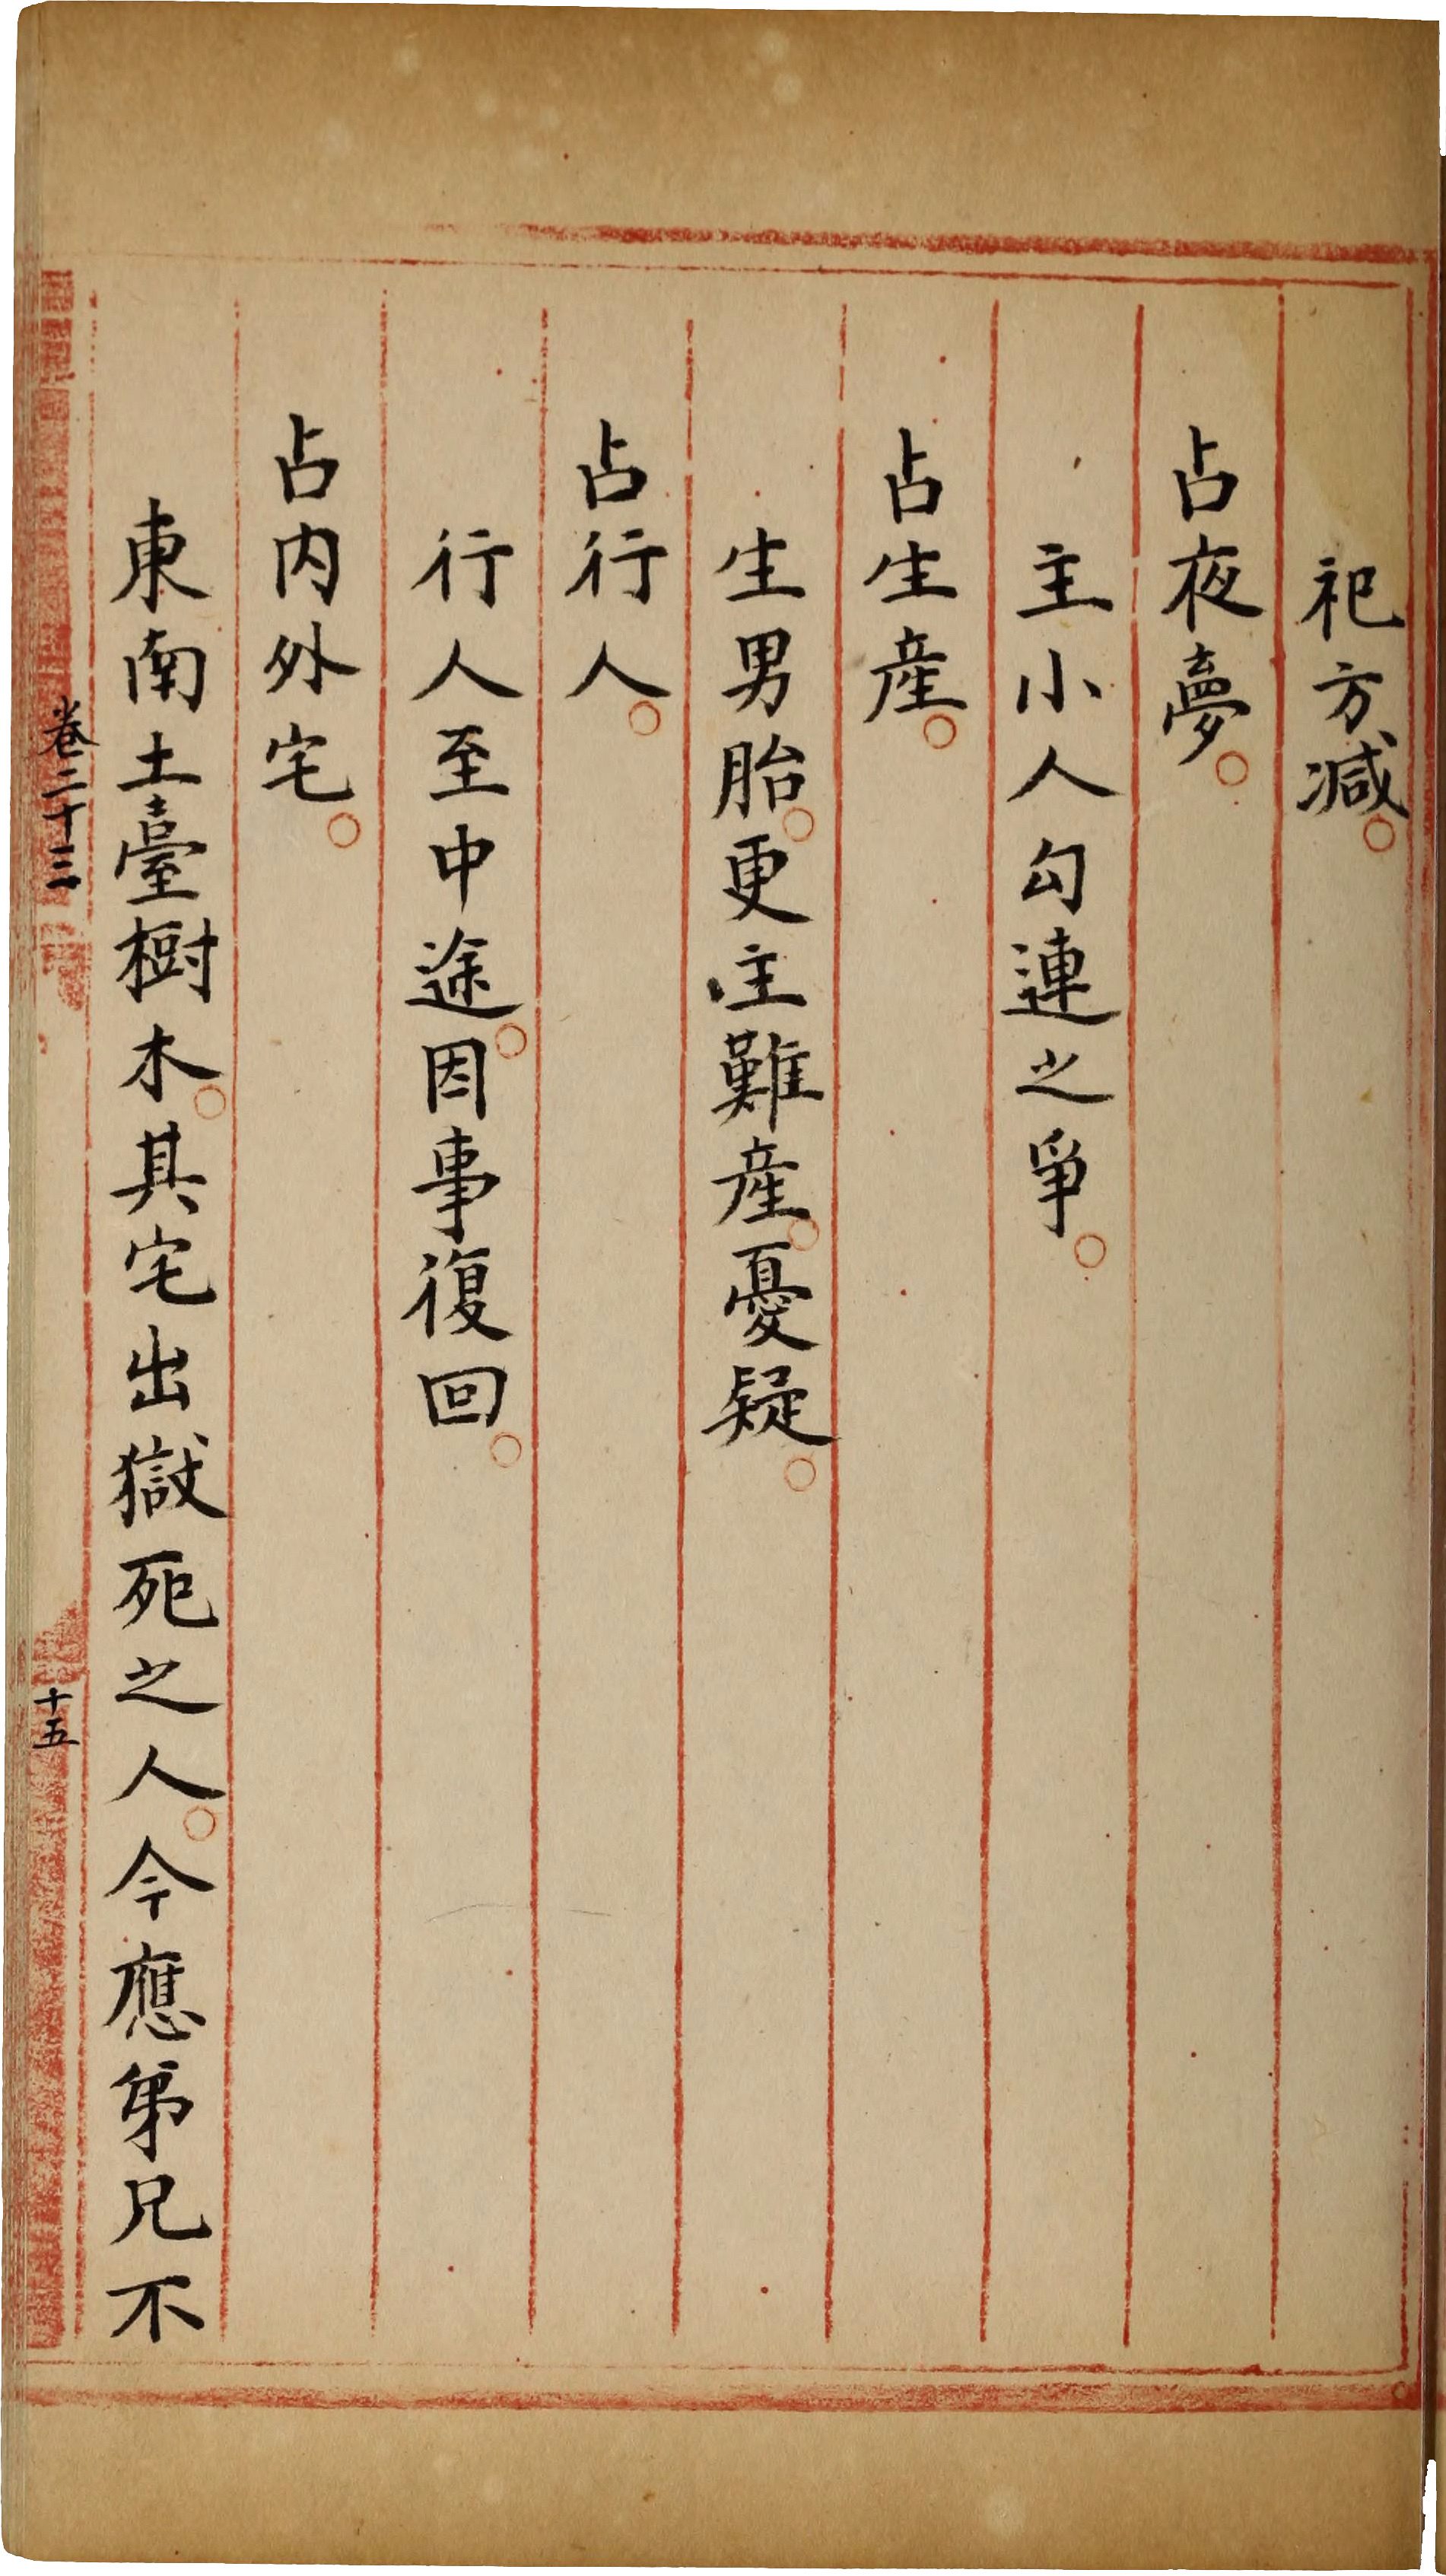 祀方減。
占夜夢。
主小人勾連之爭。
占生産。
生男胎。更主難産。憂疑。
占行人。
行人至中途。因事復回。
占内外宅。
東南土臺樹木。其宅出獄死之人。今應弟兄不
卷二十三
十五